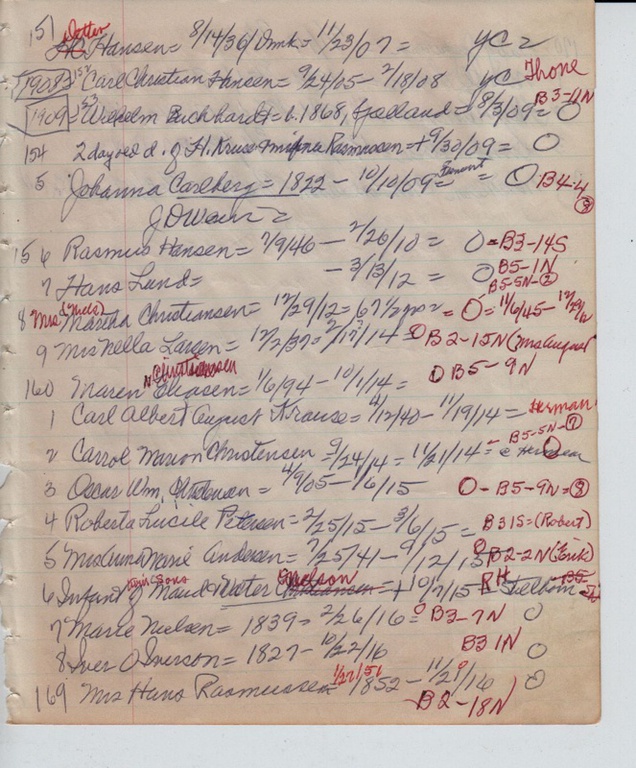 151 Dotter
H.C. Hansen = 8/14/36/Dmk = 11/23/07 = YC 2
1908 152 Carl Christian Hansen = 9/24/05 - 2/18/08 YC Thone
1909 53 Wilhelm Buchhardt = b. 1868, Jylland = 8/3/09 = O B3-11N
154 2 day old d. of H. Kruse + Rasmussen = + 9/30/09 = O
5 Johanna Carlberg = 1822 - 10/10/09 = = O B4-4 3
J.D.
156 Rasmus Hansen = 7/9/46 - 2/26/10 = O - B3-14S
7 Hans Lund = - 3/13/12 = O B5-1N
B5-5N-2
8 Mrs (Niels) Martha Christiansen = 12/29/12 = 67 1/2 = O = 11/6/45 - 12/29/12
9 Mrs Nella Larsen = 12/2/37 = 2/17/14 = O B2-15N (Mrs August
Christiansen
160 Maren Eliasen = 1/6/94 - 10/1/14 = O B5-9N
1 Carl Albert August Krause = 4/12/40 - 11/19/14 = Herman
2 Carrol Marion Christensen = 9/24/14 = 11/21/14 = B5-5N-1
3 Oscar Wm, Andersen = 4/9/05 - 1/6/15 O - B5-9N = 3
4 Roberta Lucile Petersen = 2/25/15 - 3/6/15 = B3 1S = (Robert)
5 Mrs Anna Marie Andersen = 7/25/41 - 9/12/15 O B2-2N (Erik)
6 Infant of twin sons Maud Nater Nelson = + 10/7/15 = RH
7 Marie Nielsen = 1839 - 2/26/16 = O B3-7N O
8 Iver O Iverson = 1827 - 10/22/16 B3 1N O
169 Mrs Hans Rasmussen = 1/27/51 1852 - 11/21/16 O
B2-18N